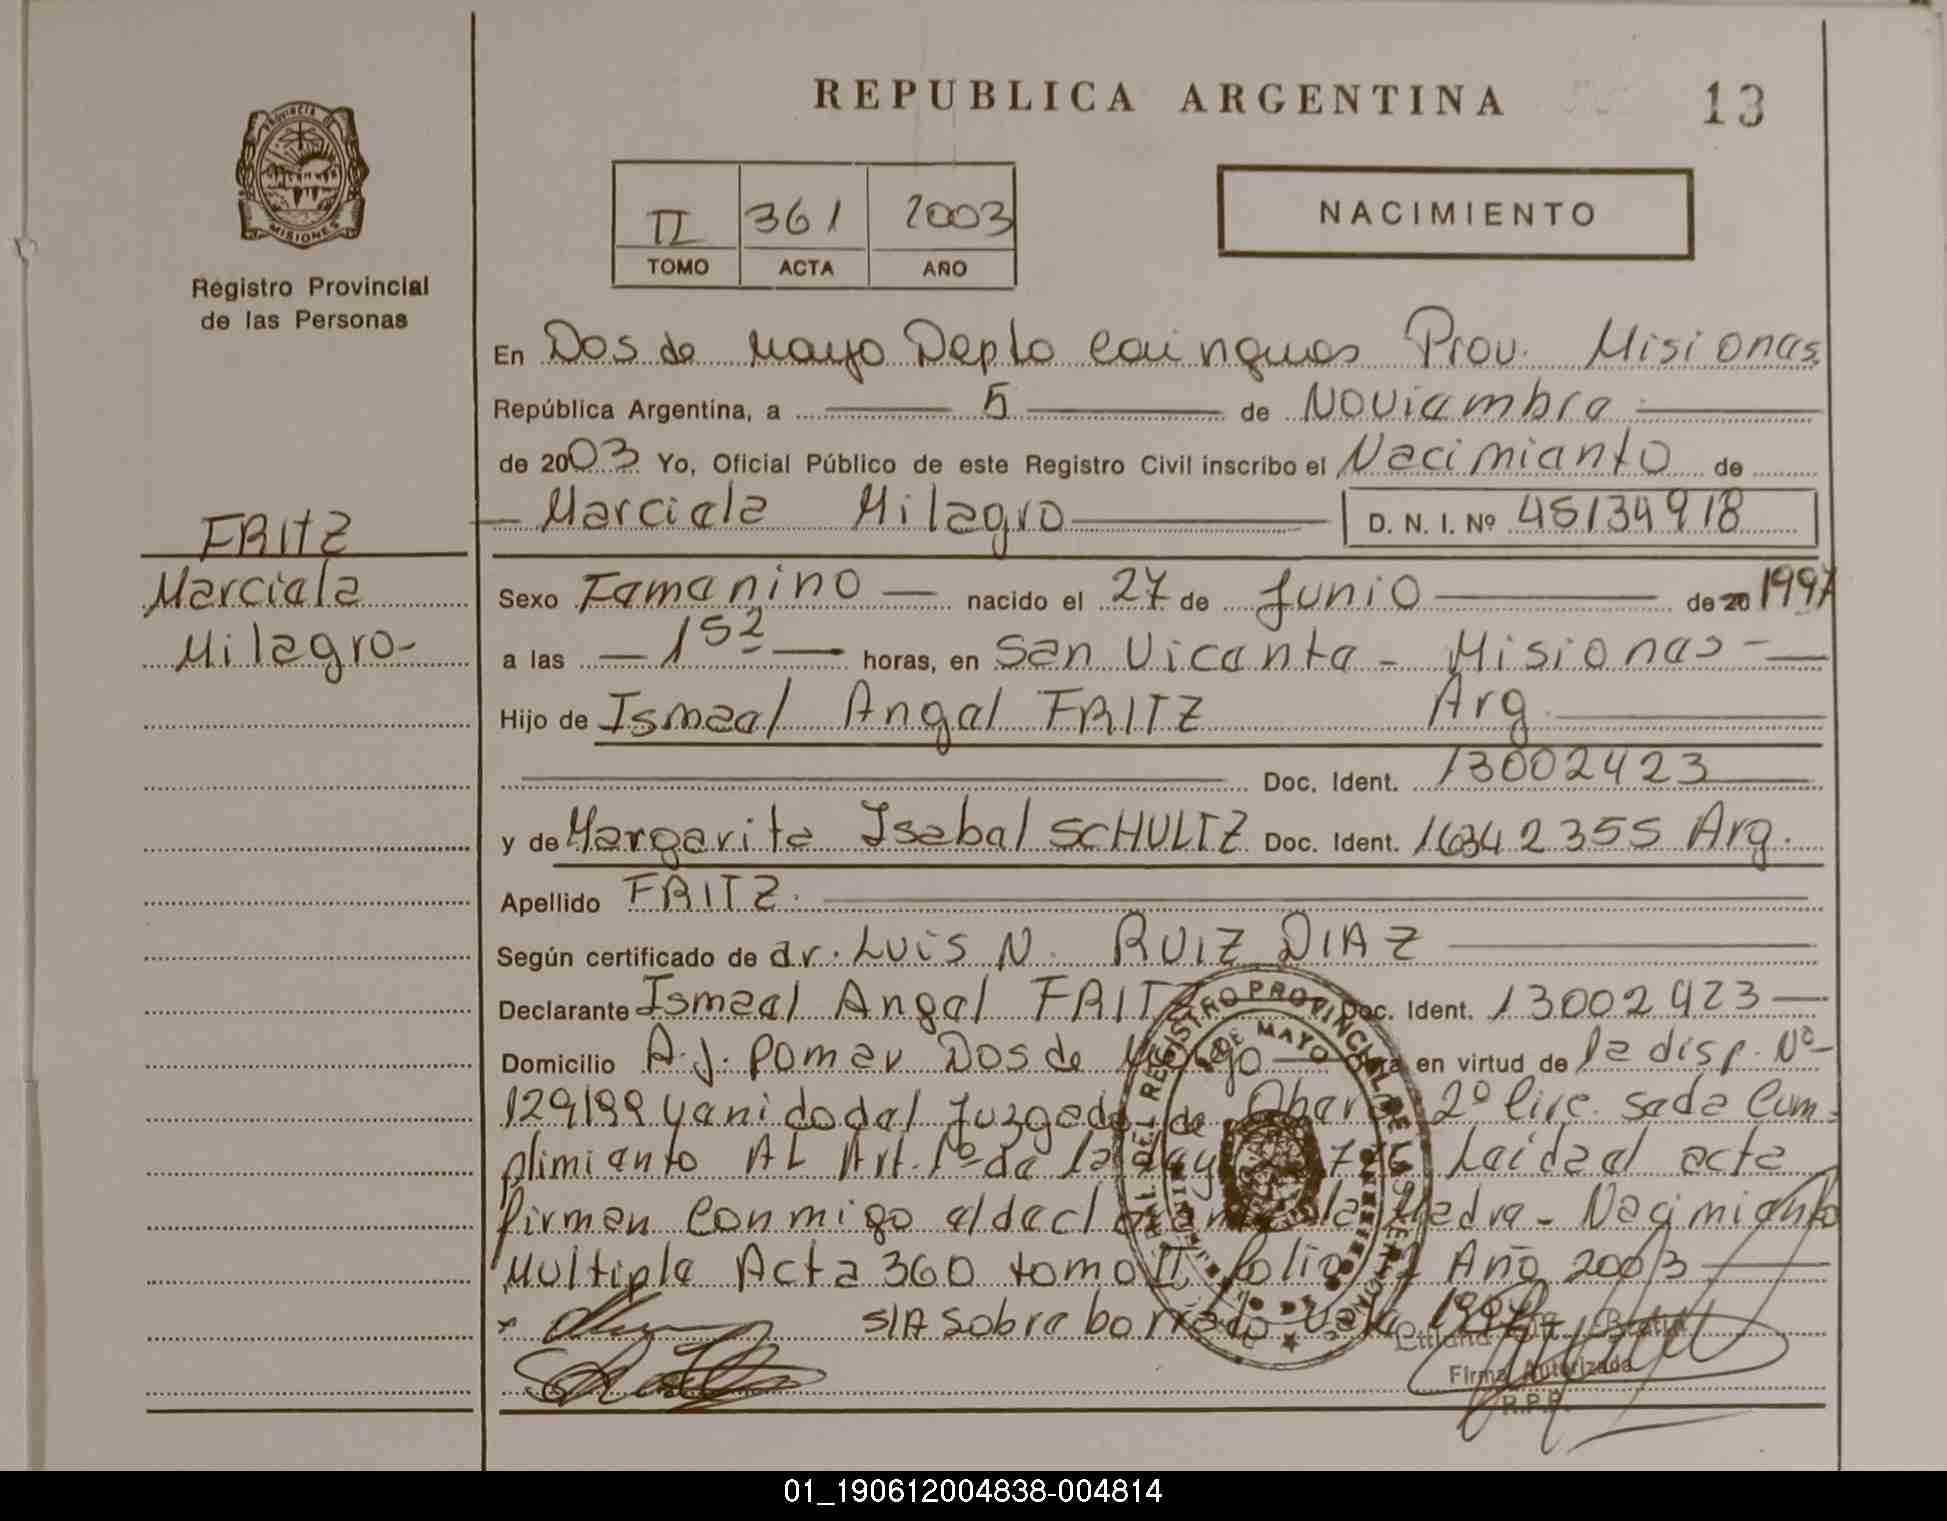 REPUBLICA ARGENTINA
13
PROVINCIA DE
MISIONES
Registro Provincial
de las Personas
II 361 2003
TOMO ACTA AÑO
NACIMIENTO
En Dos de Mayo Depto Cainguas Prov. Misiones
República Argentina, a 5 de Noviembre
de 2003 Yo, Oficial Público de este Registro Civil inscribo el Nacimiento de
Marciela Milagro D. N. I. Nº 45134918
FRITZ
Marciela
Milagro
Sexo Femenino nacido el 27 de Junio de 20 1997
a las 15 horas, en San Vicente - Misiones
Hijo de Ismael Angel FRITZ Arg.
Doc. Ident. 13002423
y de Margarita Isabel SCHULTZ Doc. Ident. 16342355 Arg.
Apellido FRITZ.
Según certificado de dr. Luis N. RUIZ DIAZ
Declarante Ismael Angel FRITZ Doc. Ident. 13002423
Domicilio A. J. Pomar Dos de Mayo Obra en virtud de la disp. Nº
129/99 venido del Juzgado de Obera 2º Circ. se da Cum-
plimiento AL Art. 1º de la Ley Leida el acta
firman conmigo el declarante y la Madre - Nacimiento
Multiple Acta 360 tomo II folio Año 2003
S/A Sobre borrado Vale 1997
Firma Autorizada
R.P.P.
01_190612004838-004814